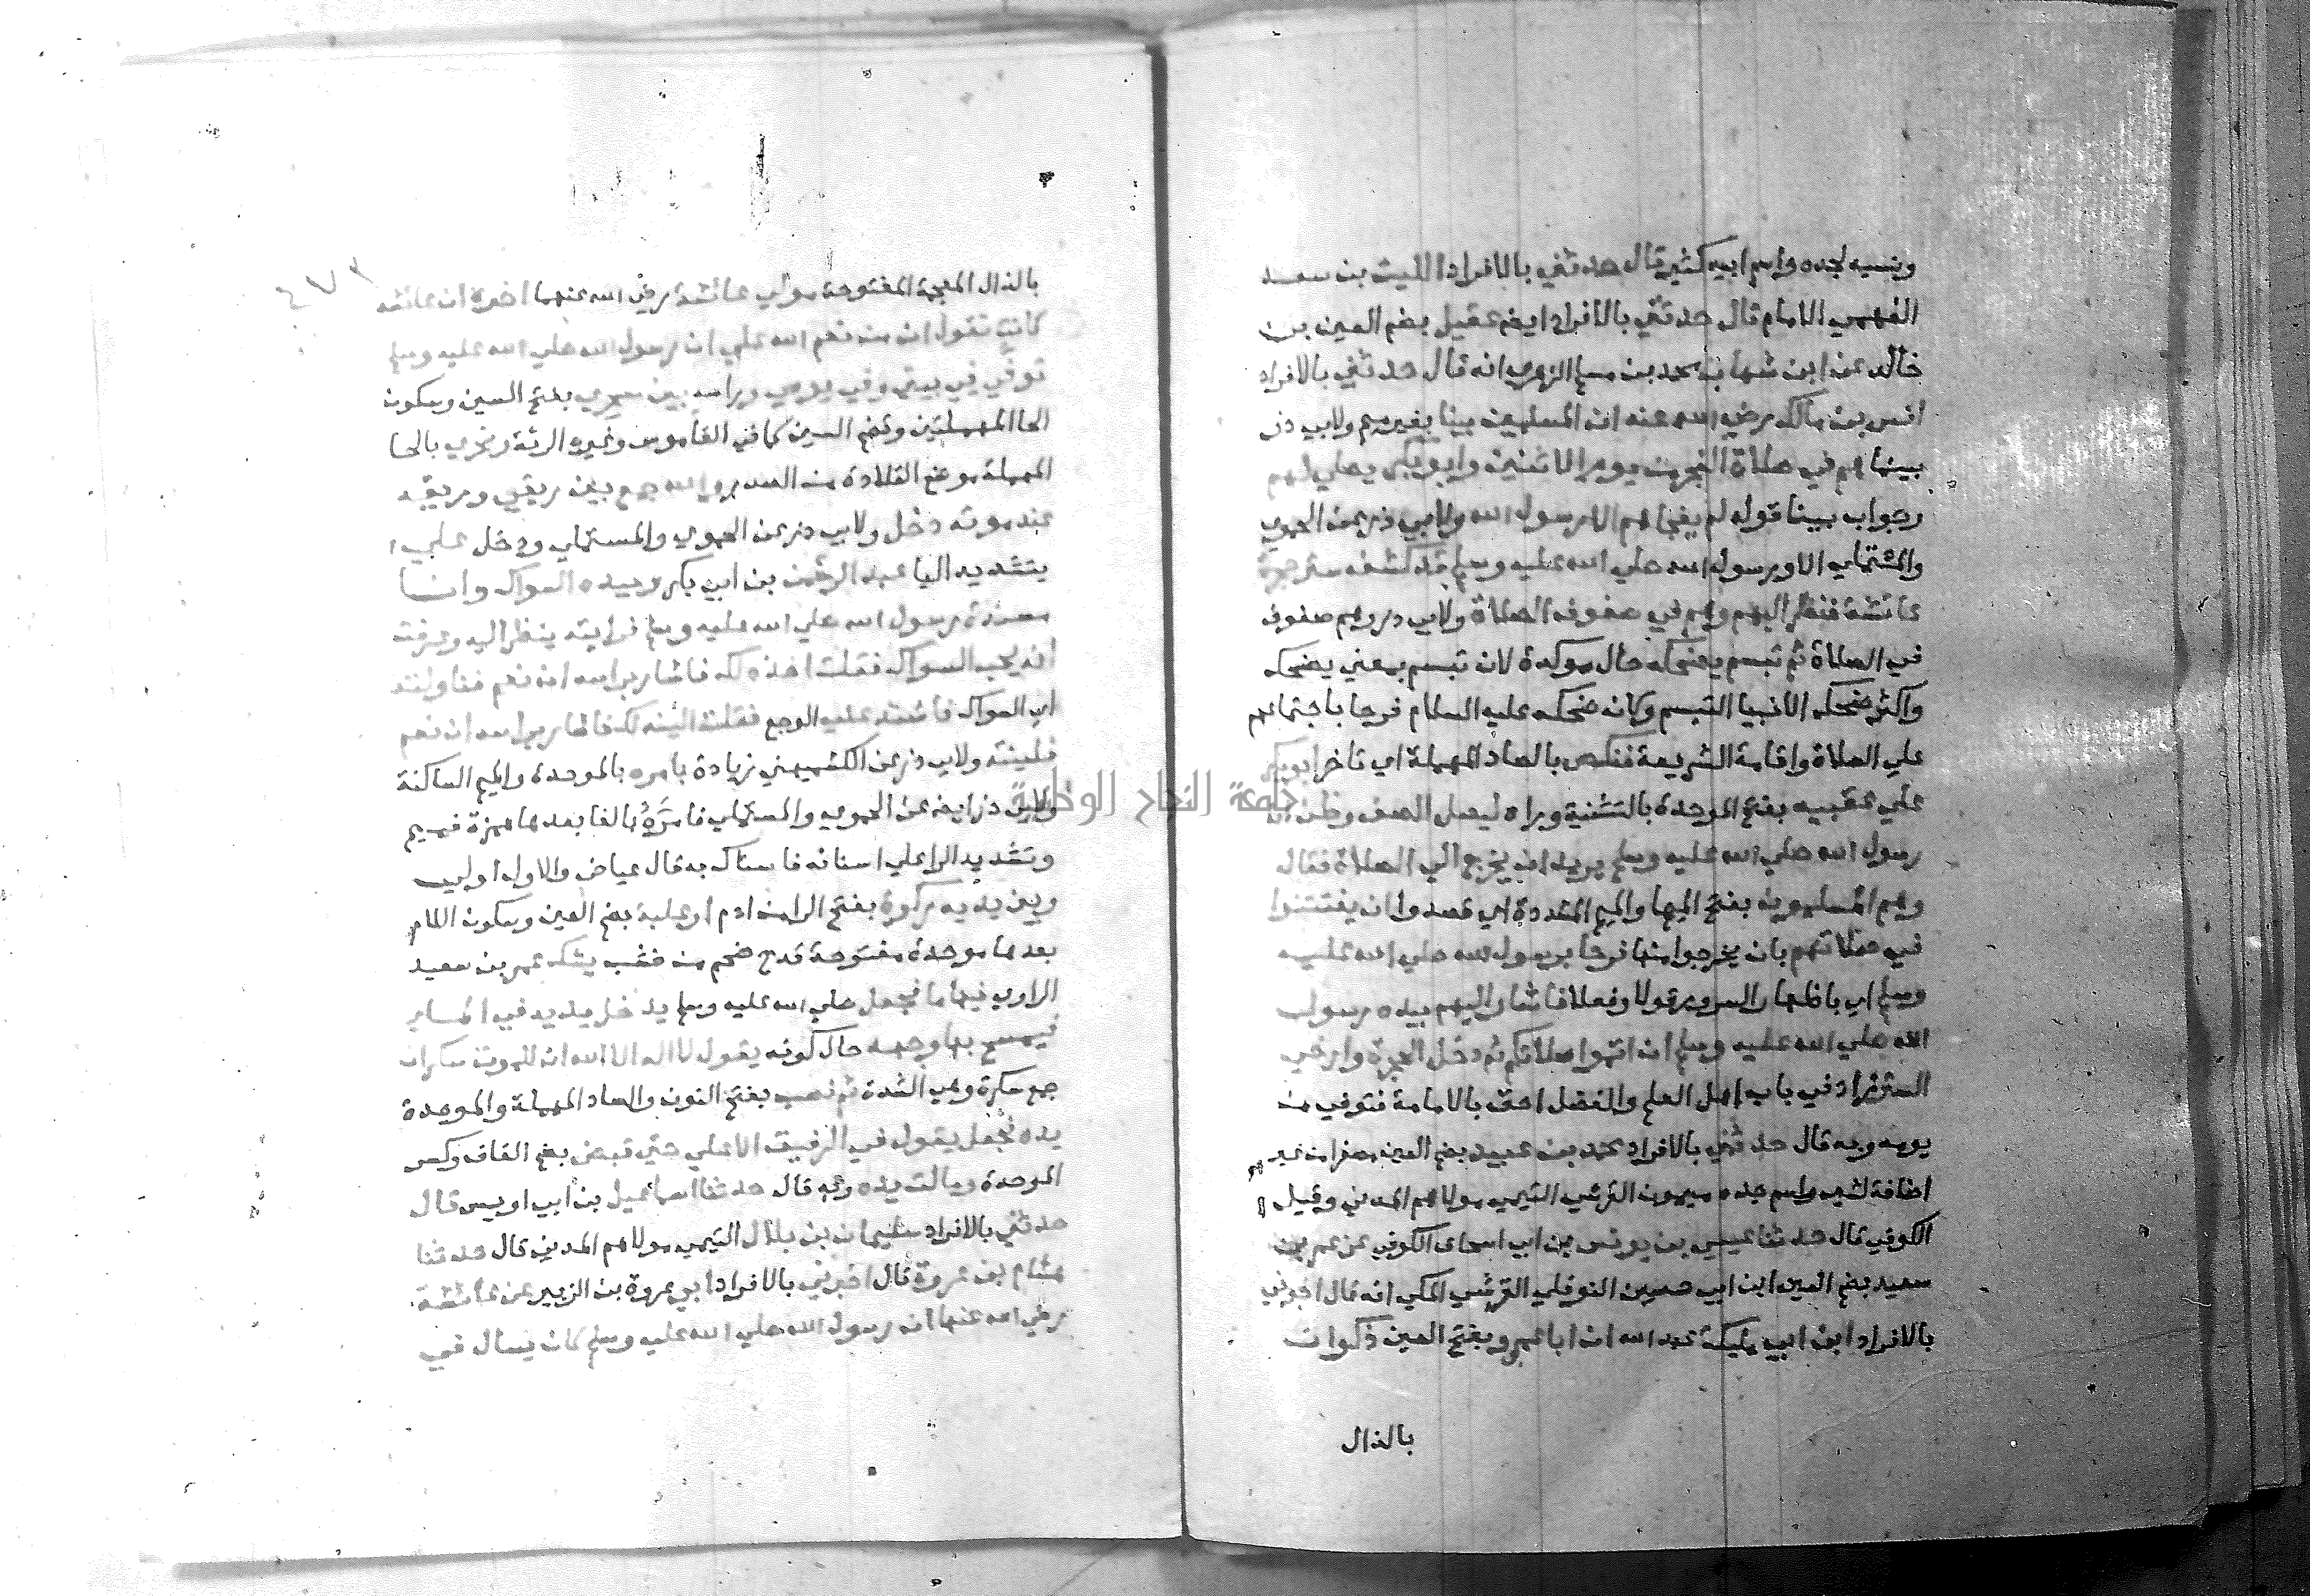 ونسبه لجده واسم ابيه كثير قال حدثني بالافراد الليث بن سعد
الفهمي الامام قال حدثني بالافراد ايضا عقيل بضم العين بن
خالد عن ابن شهاب محمد بن مسلم الزهري انه قال حدثني بالافراد
انس بن مالك رضي الله عنه ان المسلمين بينا بغير ميم ولابي ذر
بينما هم في صلاة الفجر من يوم الاثنين وابو بكر يصلي لهم
وجواب بينا قوله لم يفجاهم الا رسول الله ولابي ذر عن الحموي
والمستملي الا ورسول الله صلي الله عليه وسلم قد كشف ستر حجرة
عائشة فنظر اليهم وهم في صفوف الصلاة ولابي ذر وهم صفوف
في الصلاة ثم تبسم يضحك حال موكدة لان تبسم بمعني يضحك
واكثر ضحك الانبيا التبسم وكان ضحكه عليه السلام فرحا باجتماعهم
علي الصلاة واقامة الشريعة فنكص بالصاد المهملة اي تاخر ابو بكر
علي عقبيه بفتح الموحدة بالتثنية وراه ليصل الصف وظن ان
رسول الله صلي الله عليه وسلم يريد ان يخرج الي الصلاة فقال
وهم المسلمون بفتح الها والميم المشددة اي قصدوا ان يفتتنوا
في صلاتهم بان يخرجوا منها فرحا برسول الله صلي الله عليه
وسلم اي باظهار السرور قولا وفعلا فاشار اليهم بيده رسول
الله صلي الله عليه وسلم ان اتموا صلاتكم ثم دخل الحجرة وارخي
الستر زاد في باب اهل العلم والفضل احق بالامامة فتوفي من
يومه وبه قال حدثني بالافراد محمد بن عبيد بضم العين مصغرا من غير
اضافة لشي واسم جده ميمون القرشي التيمي مولاهم المدني وقيل
الكوفي قال حدثنا عيسي بن يونس بن ابي اسحاق الكوفي عن عمر بن
سعيد بضم العين ابن ابي حسين النوفلي القرشي المكي انه قال اخبرني
بالافراد ابن ابي مليكة عبد الله ان ابا عمرو بفتح العين ذكوان
بالذال
بالذال المعجمة المفتوحة مولي عائشة رضي الله عنهما اخبره ان عائشه
كانت تقول ان من نعم الله علي ان رسول الله صلي الله عليه وسلم
توفي في بيتي وفي يومي وراسه بين سحري بفتح السين وسكون
الحا المهملتين وتضم السين كما في القاموس وغيره الرئة ونحري بالحا
المهملة موضع القلادة من الصدر وان الله جمع بين ريقي وريقه
عند موته دخل ولابي ذر عن الحموي والمستملي ودخل علي
بتشديد اليا عبد الرحمن بن ابي بكر وبيده السواك وانا
مسندة رسول الله صلي الله عليه وسلم فرايته ينظر اليه وعرفت
انه يحب السواك فقلت اخذه لك فاشار براسه ان نعم فناولته
اي السواك فاشتد عليه الوجع فقلت الينه لك فاشار براسه ان نعم
فلينته ولابي ذر عن الكشميهني زيادة بامره بالموحدة والميم الساكنة
ولابي ذر ايضا عن الحموي والمستملي فامره بالفا بعدها همزة فميم
وتشديد الرا علي اسنانه فاستاك به قال عياض والاول اولي
وبين يديه ركوة بفتح الرا من ادم او علبة بضم العين وسكون اللام
بعدها موحدة مفتوحة قدح ضخم من خشب يشك عمر بن سعيد
الراوي فيها ما فجعل صلي الله عليه وسلم يدخل يديه في الماء
فيمسح بها وجهه حال كونه يقول لا اله الا الله ان للموت سكرات
جمع سكرة وهي الشدة ثم نصب بفتح النون والصاد المهملة والموحدة
يده فجعل يقول في الرفيق الاعلي حتي قبض بضم القاف وكسر
الموحدة ومالت يده وبه قال حدثنا اسماعيل بن ابي اويس قال
حدثني بالافراد سليمان بن بلال التيمي مولاهم المدني قال حدثنا
هشام بن عروة قال اخبرني بالافراد ابي عروة بن الزبير عن عائشة
رضي الله عنها ان رسول الله صلي الله عليه وسلم كان يسال في
جامعة النجاح الوطنية